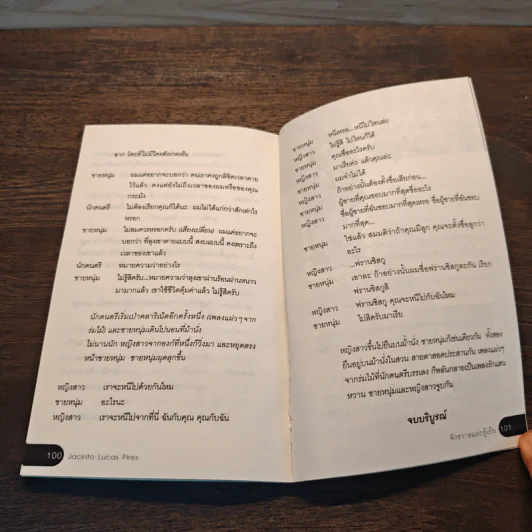 ฉาก โดยที่ไม่มีใครสังเกตเห็น
ชายหนุ่ม ผมแค่อยากจะบอกว่า คนเราคงถูกลิขิตเวลาตาย
ไว้แล้ว คงแค่ยังไม่ถึงเวลาของผมหรือของคุณ
กระมัง
นักดนตรี ไม่ต้องเรียกคุณก็ได้นะ ผมไม่ได้แก่กว่าสักเท่าไร
หรอก
ชายหนุ่ม ไม่สมควรหรอกครับ (เสียงเปลี่ยน) ผมแค่อยากจะ
บอกว่า ที่ลุงเขาตายแบบนี้ สงบแบบนี้ คงเพราะถึง
เวลาของเขาแล้ว
นักดนตรี หมายความว่าอย่างไร
ชายหนุ่ม ไม่รู้สิครับ...หมายความว่าลุงเขาผ่านร้อนผ่านหนาว
มามากแล้ว เขาใช้ชีวิตคุ้มค่าแล้ว ไม่รู้สิครับ
นักดนตรีเริ่มเป่าคลาริเน็ตอีกครั้งหนึ่ง (เพลงแผ่วๆ จาก
ร่มไม้) และชายหนุ่มเดินไปนอนที่ม้านั่ง
ไม่นานนัก หญิงสาวจากองก์ที่หนึ่งก็วิ่งมา และหยุดตรง
หน้าชายหนุ่ม ชายหนุ่มผุดลุกขึ้น
หญิงสาว เราจะหนีไปด้วยกันไหม
ชายหนุ่ม อะไรนะ
หญิงสาว เราจะหนีไปจากที่นี่ ฉันกับคุณ คุณกับฉัน
100 Jacinto Lucas Pires
ชายหนุ่ม หนีเหรอ...หนีไปไหนล่ะ
หญิงสาว ไม่รู้สิ ไปไหนก็ได้
ชายหนุ่ม คุณชื่ออะไรครับ
หญิงสาว มาเรียค่ะ แล้วคุณล่ะ
ชายหนุ่ม ผมจำไม่ได้
หญิงสาว ถ้าอย่างนั้นต้องตั้งชื่อเสียก่อน...
ชายหนุ่ม ผู้ชายที่คุณชอบมากที่สุดชื่ออะไร
หญิงสาว ชื่อผู้ชายที่ฉันชอบมากที่สุดเหรอ ชื่อผู้ชายที่ฉันชอบ
มากที่สุด...
ชายหนุ่ม ใช่แล้ว สมมติว่าถ้าคุณมีลูก คุณจะตั้งชื่อลูกว่า
อะไร
หญิงสาว ...ฟรานซิสกู
ชายหนุ่ม เอาละ ถ้าอย่างนั้นผมชื่อฟรานซิสกูละกัน เรียก
ฟรานซิสกูสิ
หญิงสาว ฟรานซิสกู คุณจะหนีไปกับฉันไหม
ชายหนุ่ม ไปสิครับมาเรีย
หญิงสาวขึ้นไปยืนบนม้านั่ง ชายหนุ่มก็เช่นเดียวกัน ทั้งสอง
ยืนอยู่บนม้านั่งในสวน สายตาสอดประสานกัน เพลงแผ่วๆ
จากร่มไม้ที่นักดนตรีบรรเลง ก็พลันกลายเป็นเพลงรักแสน
หวาน ชายหนุ่มและหญิงสาวจูบกัน
จบบริบูรณ์
จักรวาลและตู้เย็น 101